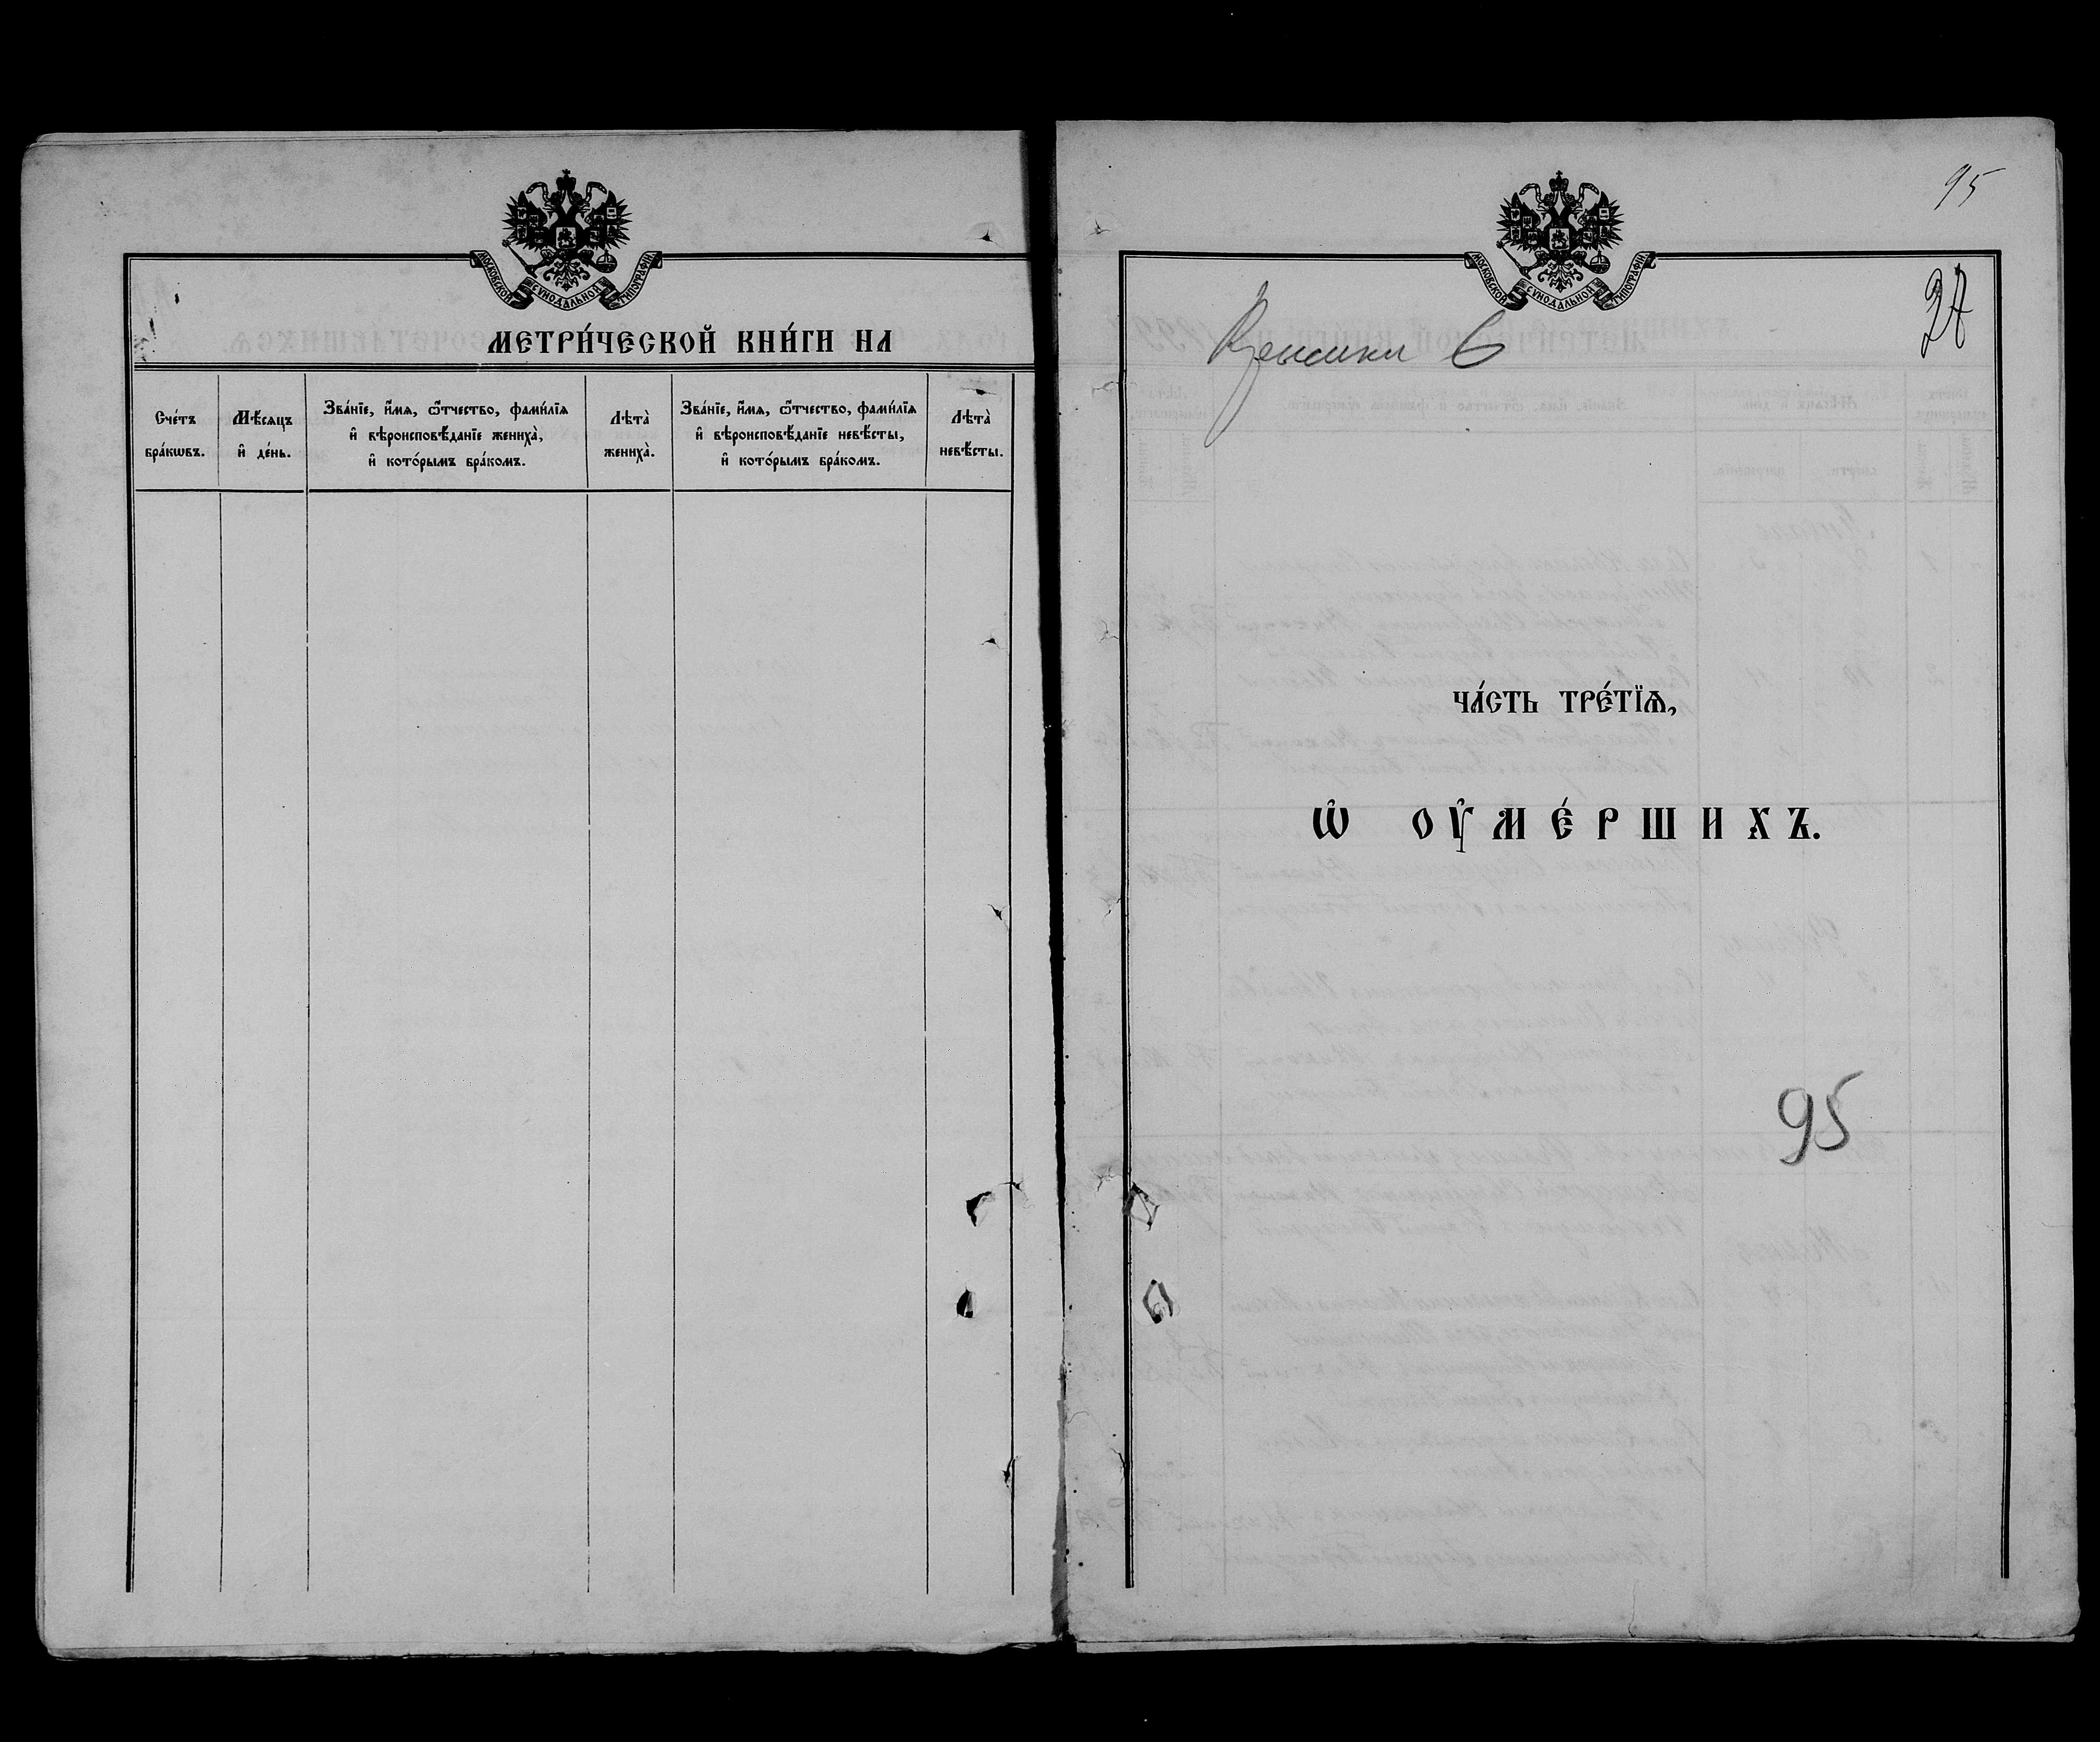 МОСКОВСКОЙ СѴНОДАЛЬНОЙ ТИПОГРАФІИ
МЕТРИ́ЧЕСКОЙ КНИ́ГИ НА
Сче́тъ бра́кѡвъ.
Мѣ́сѧцъ и҆ де́нь.
Зва́нїе, и҆́мѧ, ѻ҆́тчество, фами́лїѧ
и҆ вѣроисповѣ́данїе жениха̀,
и҆ кото́рымъ бра́комъ.
Лѣта̀ жениха̀.
Зва́нїе, и҆́мѧ, ѻ҆́тчество, фами́лїѧ
и҆ вѣроисповѣ́данїе невѣ́сты,
и҆ кото́рымъ бра́комъ.
Лѣта̀ невѣ́сты.
95
МОСКОВСКОЙ СѴНОДАЛЬНОЙ ТИПОГРАФІИ
ЧА́СТЬ ТРЕ́ТЇѦ,
Ѡ҆ ОУ҆МЕ́РШИХЪ.
95